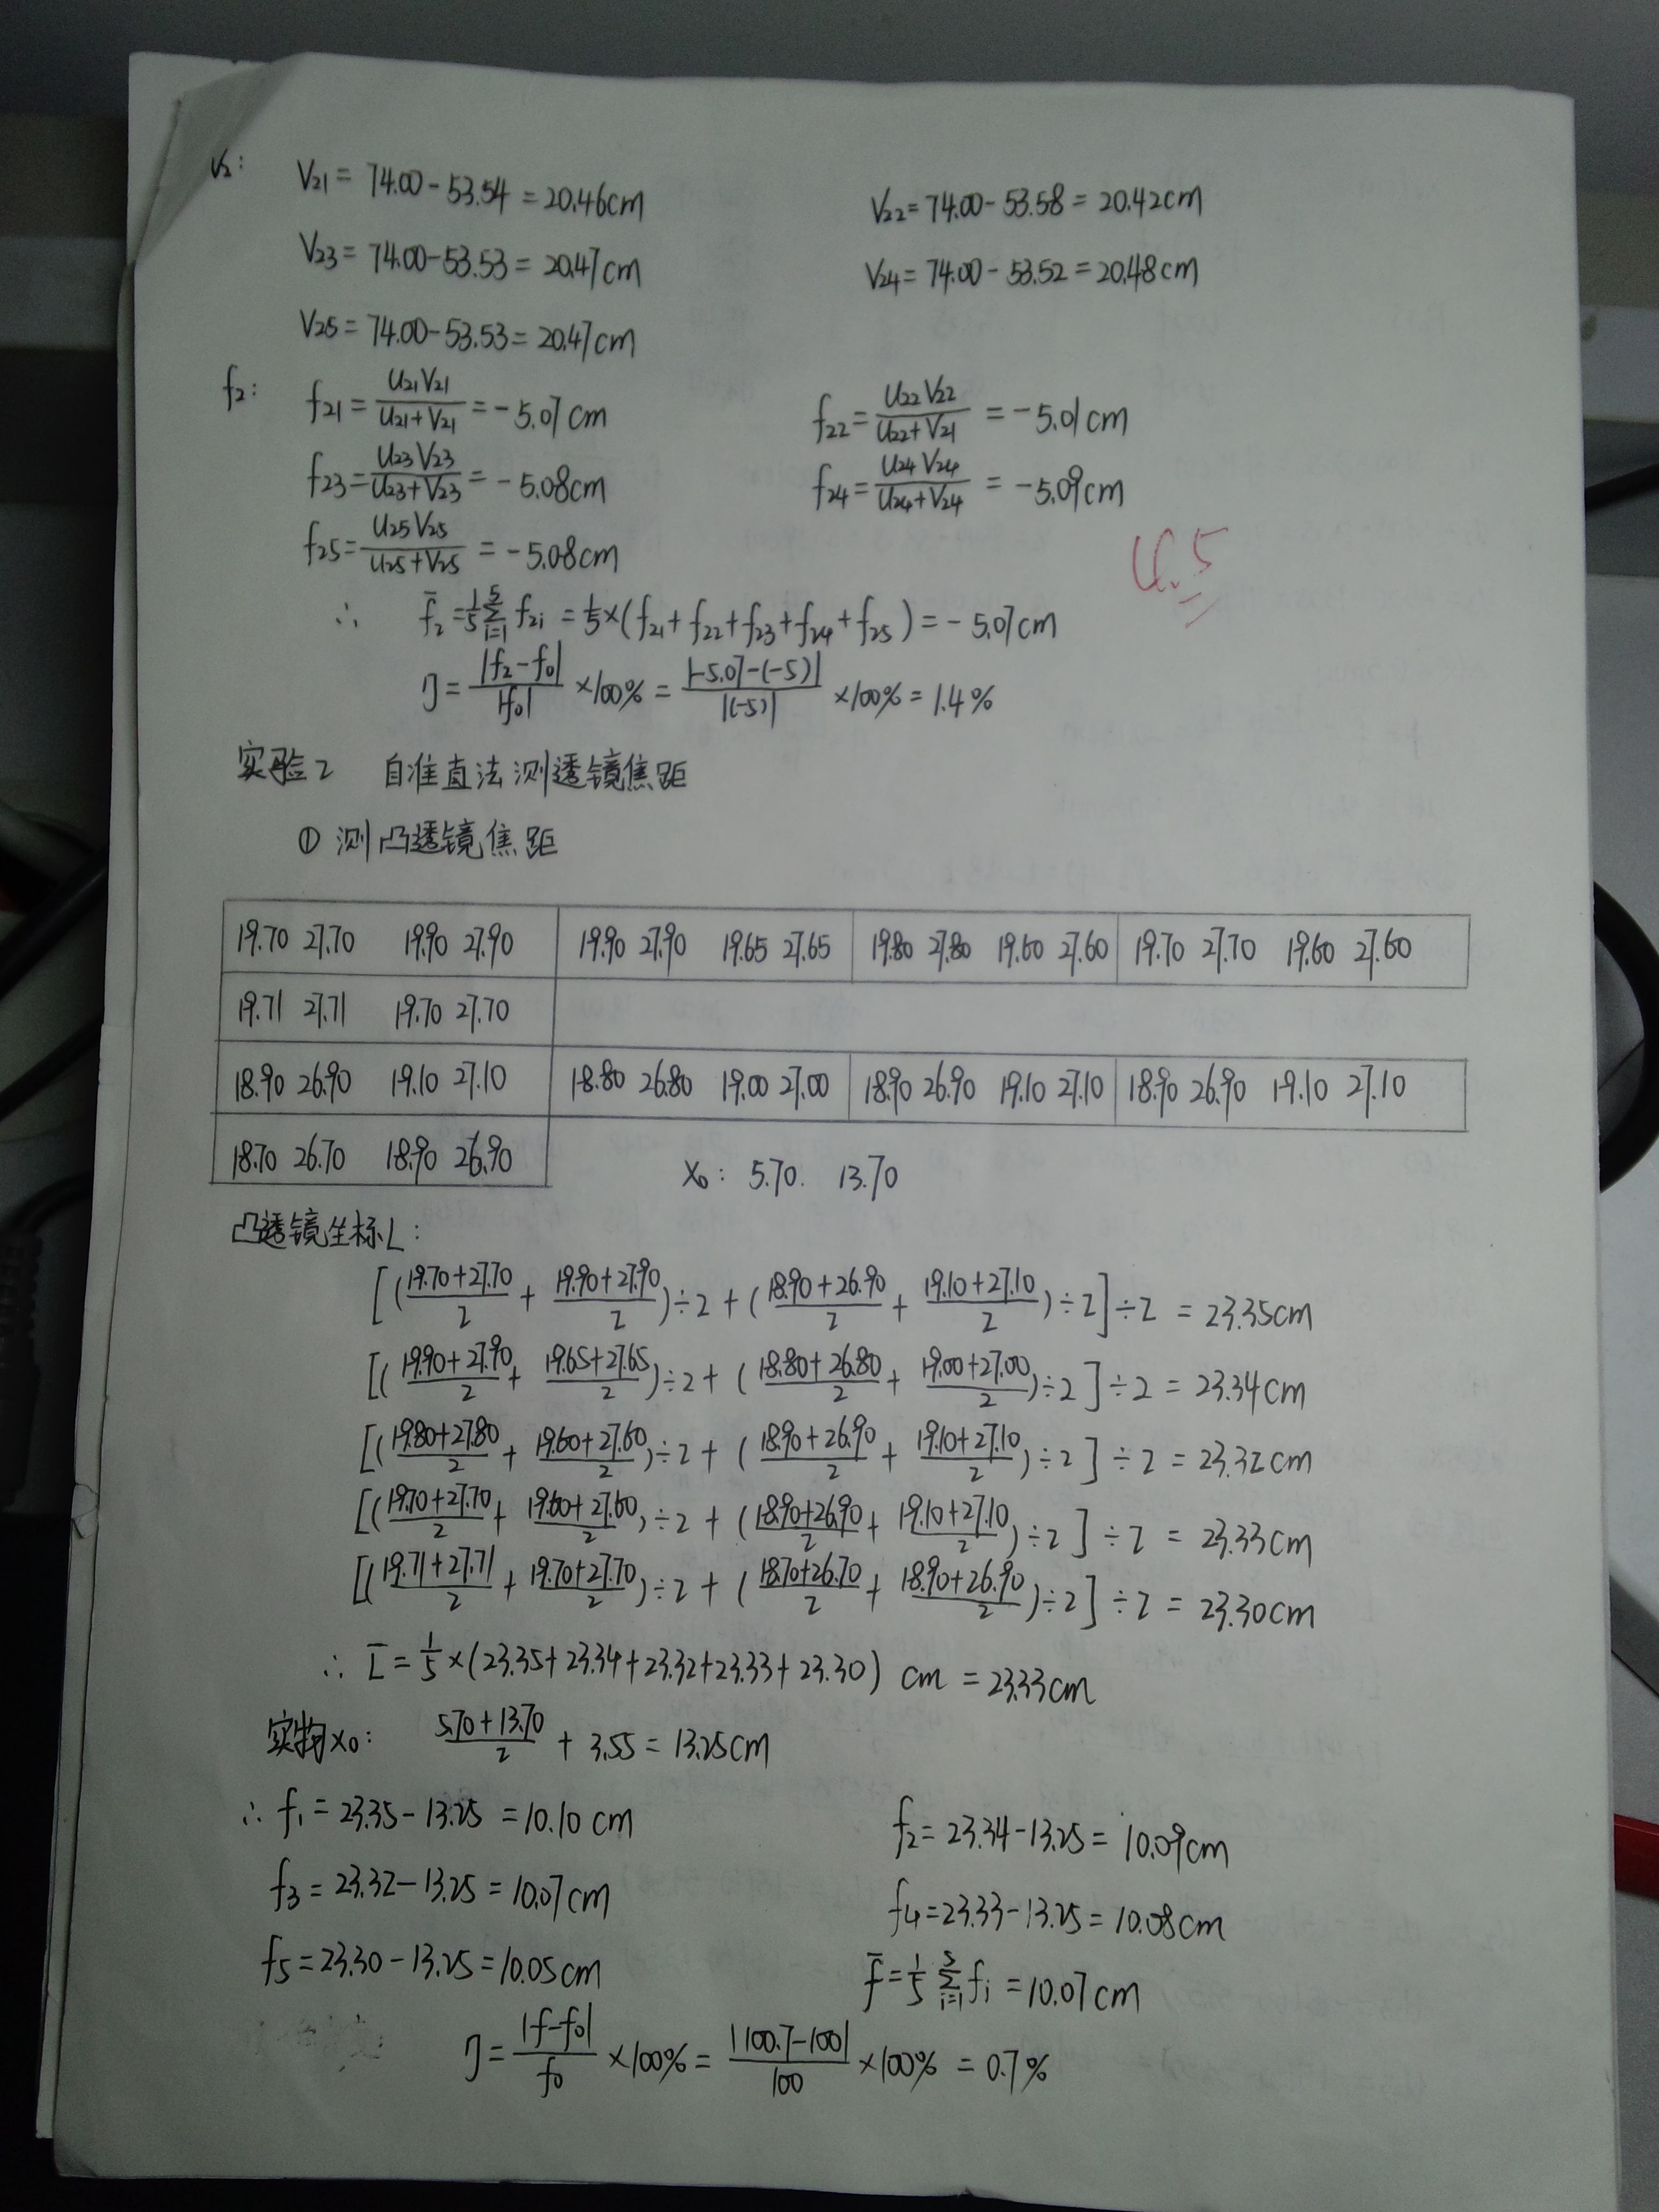 V₂: V₂₁ = 74.00-53.54 = 20.46cm V₂₂ = 74.00-53.58 = 20.42cm
V₂₃ = 74.00-53.53 = 20.47cm V₂₄ = 74.00-53.52 = 20.48cm
V₂₅ = 74.00-53.53 = 20.47cm
f₂: f₂₁ = U₂₁V₂₁/(U₂₁+V₂₁) = -5.07cm f₂₂ = U₂₂V₂₂/(U₂₂+V₂₁) = -5.01cm
f₂₃ = U₂₃V₂₃/(U₂₃+V₂₃) = -5.08cm f₂₄ = U₂₄V₂₄/(U₂₄+V₂₄) = -5.09cm
f₂₅ = U₂₅V₂₅/(U₂₅+V₂₅) = -5.08cm
4.5
∴ f̄₂ = 1/5 Σ(i=1→5) f₂ᵢ = 1/5×(f₂₁+f₂₂+f₂₃+f₂₄+f₂₅) = -5.07cm
η = |f₂-f₀|/|f₀| ×100% = |-5.07-(-5)|/|(-5)| ×100% = 1.4%
实验2 自准直法测透镜焦距
① 测凸透镜焦距
19.70 27.70 19.90 27.90 19.90 27.90 19.65 27.65 19.80 27.80 19.60 27.60 19.70 27.70 19.60 27.60
19.71 27.71 19.70 27.70
18.90 26.90 19.10 27.10 18.80 26.80 19.00 27.00 18.90 26.90 19.10 27.10 18.90 26.90 19.10 27.10
18.70 26.70 18.90 26.90 X₀: 5.70. 13.70
凸透镜坐标L:
[((19.70+27.70)/2 + (19.90+27.90)/2)÷2 + ((18.90+26.90)/2 + (19.10+27.10)/2)÷2]÷2 = 23.35cm
[((19.90+27.90)/2 + (19.65+27.65)/2)÷2 + ((18.80+26.80)/2 + (19.00+27.00)/2)÷2]÷2 = 23.34cm
[((19.80+27.80)/2 + (19.60+27.60)/2)÷2 + ((18.90+26.90)/2 + (19.10+27.10)/2)÷2]÷2 = 23.32cm
[((19.70+27.70)/2 + (19.60+27.60)/2)÷2 + ((18.90+26.90)/2 + (19.10+27.10)/2)÷2]÷2 = 23.33cm
[((19.71+27.71)/2 + (19.70+27.70)/2)÷2 + ((18.70+26.70)/2 + (18.90+26.90)/2)÷2]÷2 = 23.30cm
∴ L̄ = 1/5×(23.35+23.34+23.32+23.33+23.30) cm = 23.33cm
实物x₀: (5.70+13.70)/2 + 3.55 = 13.25cm
∴ f₁ = 23.35-13.25 = 10.10cm f₂ = 23.34-13.25 = 10.09cm
f₃ = 23.32-13.25 = 10.07cm f₄ = 23.33-13.25 = 10.08cm
f₅ = 23.30-13.25 = 10.05cm f̄ = 1/5 Σ(i=1→5) fᵢ = 10.07cm
η = |f-f₀|/f₀ ×100% = |100.7-100|/100 ×100% = 0.7%